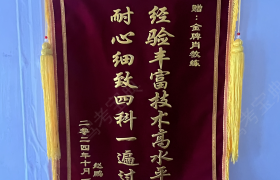 赠：金牌肖教练
经验丰富技术高水平
耐心细致四科一遍过
赵鹏
二零二四年十月一